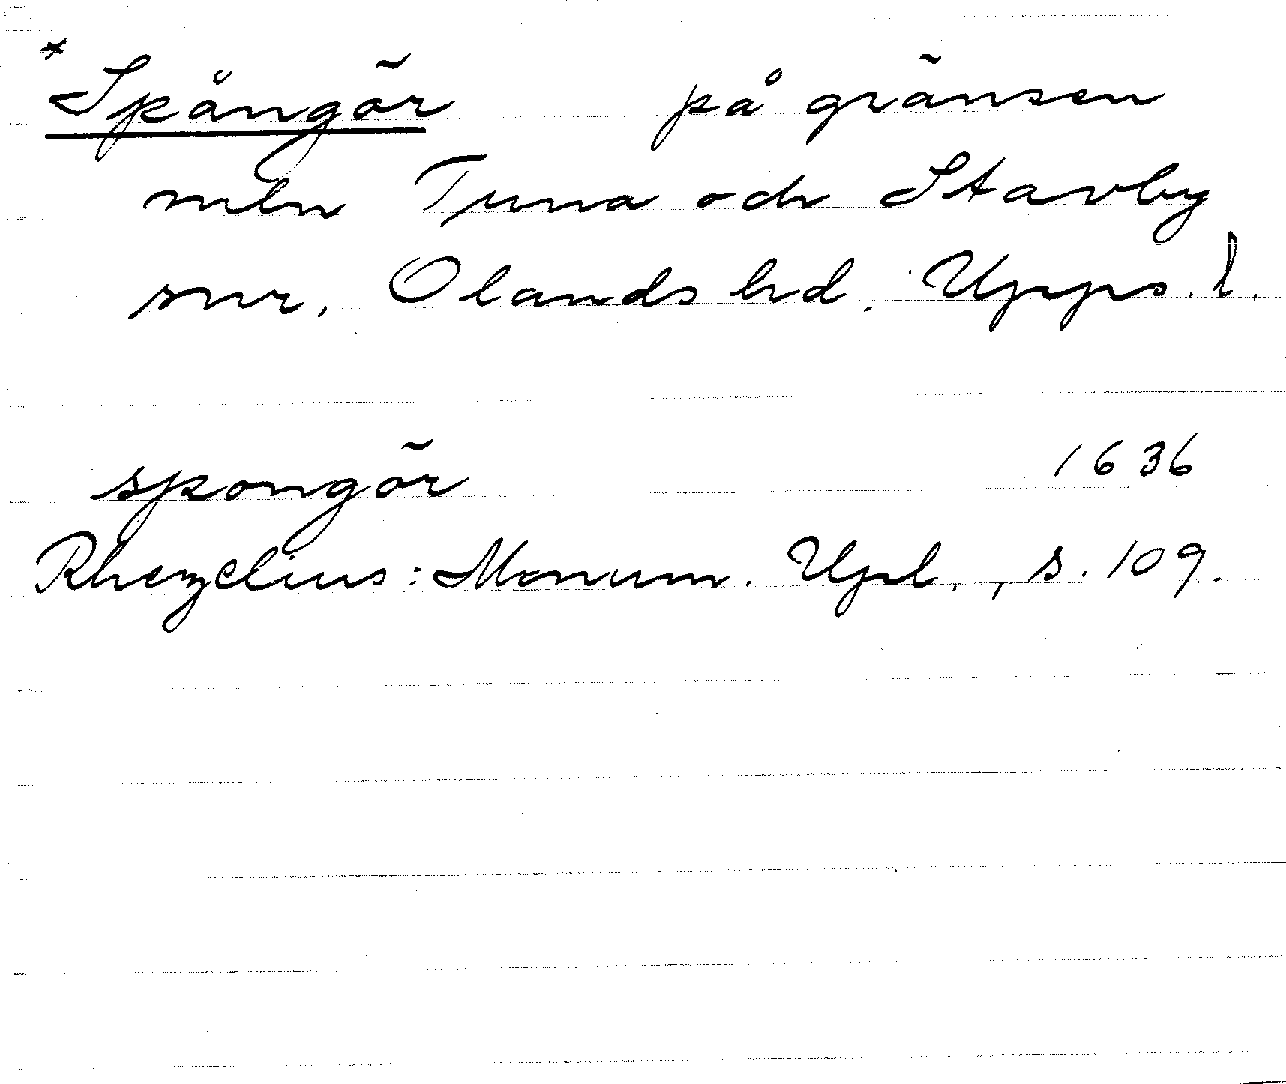 *Spångör på gränsen
mln Tuna och Stavby
snr, Olands hd. Upps. l.
spongör 1636
Rhezelius: Monum. Upl., s. 109.